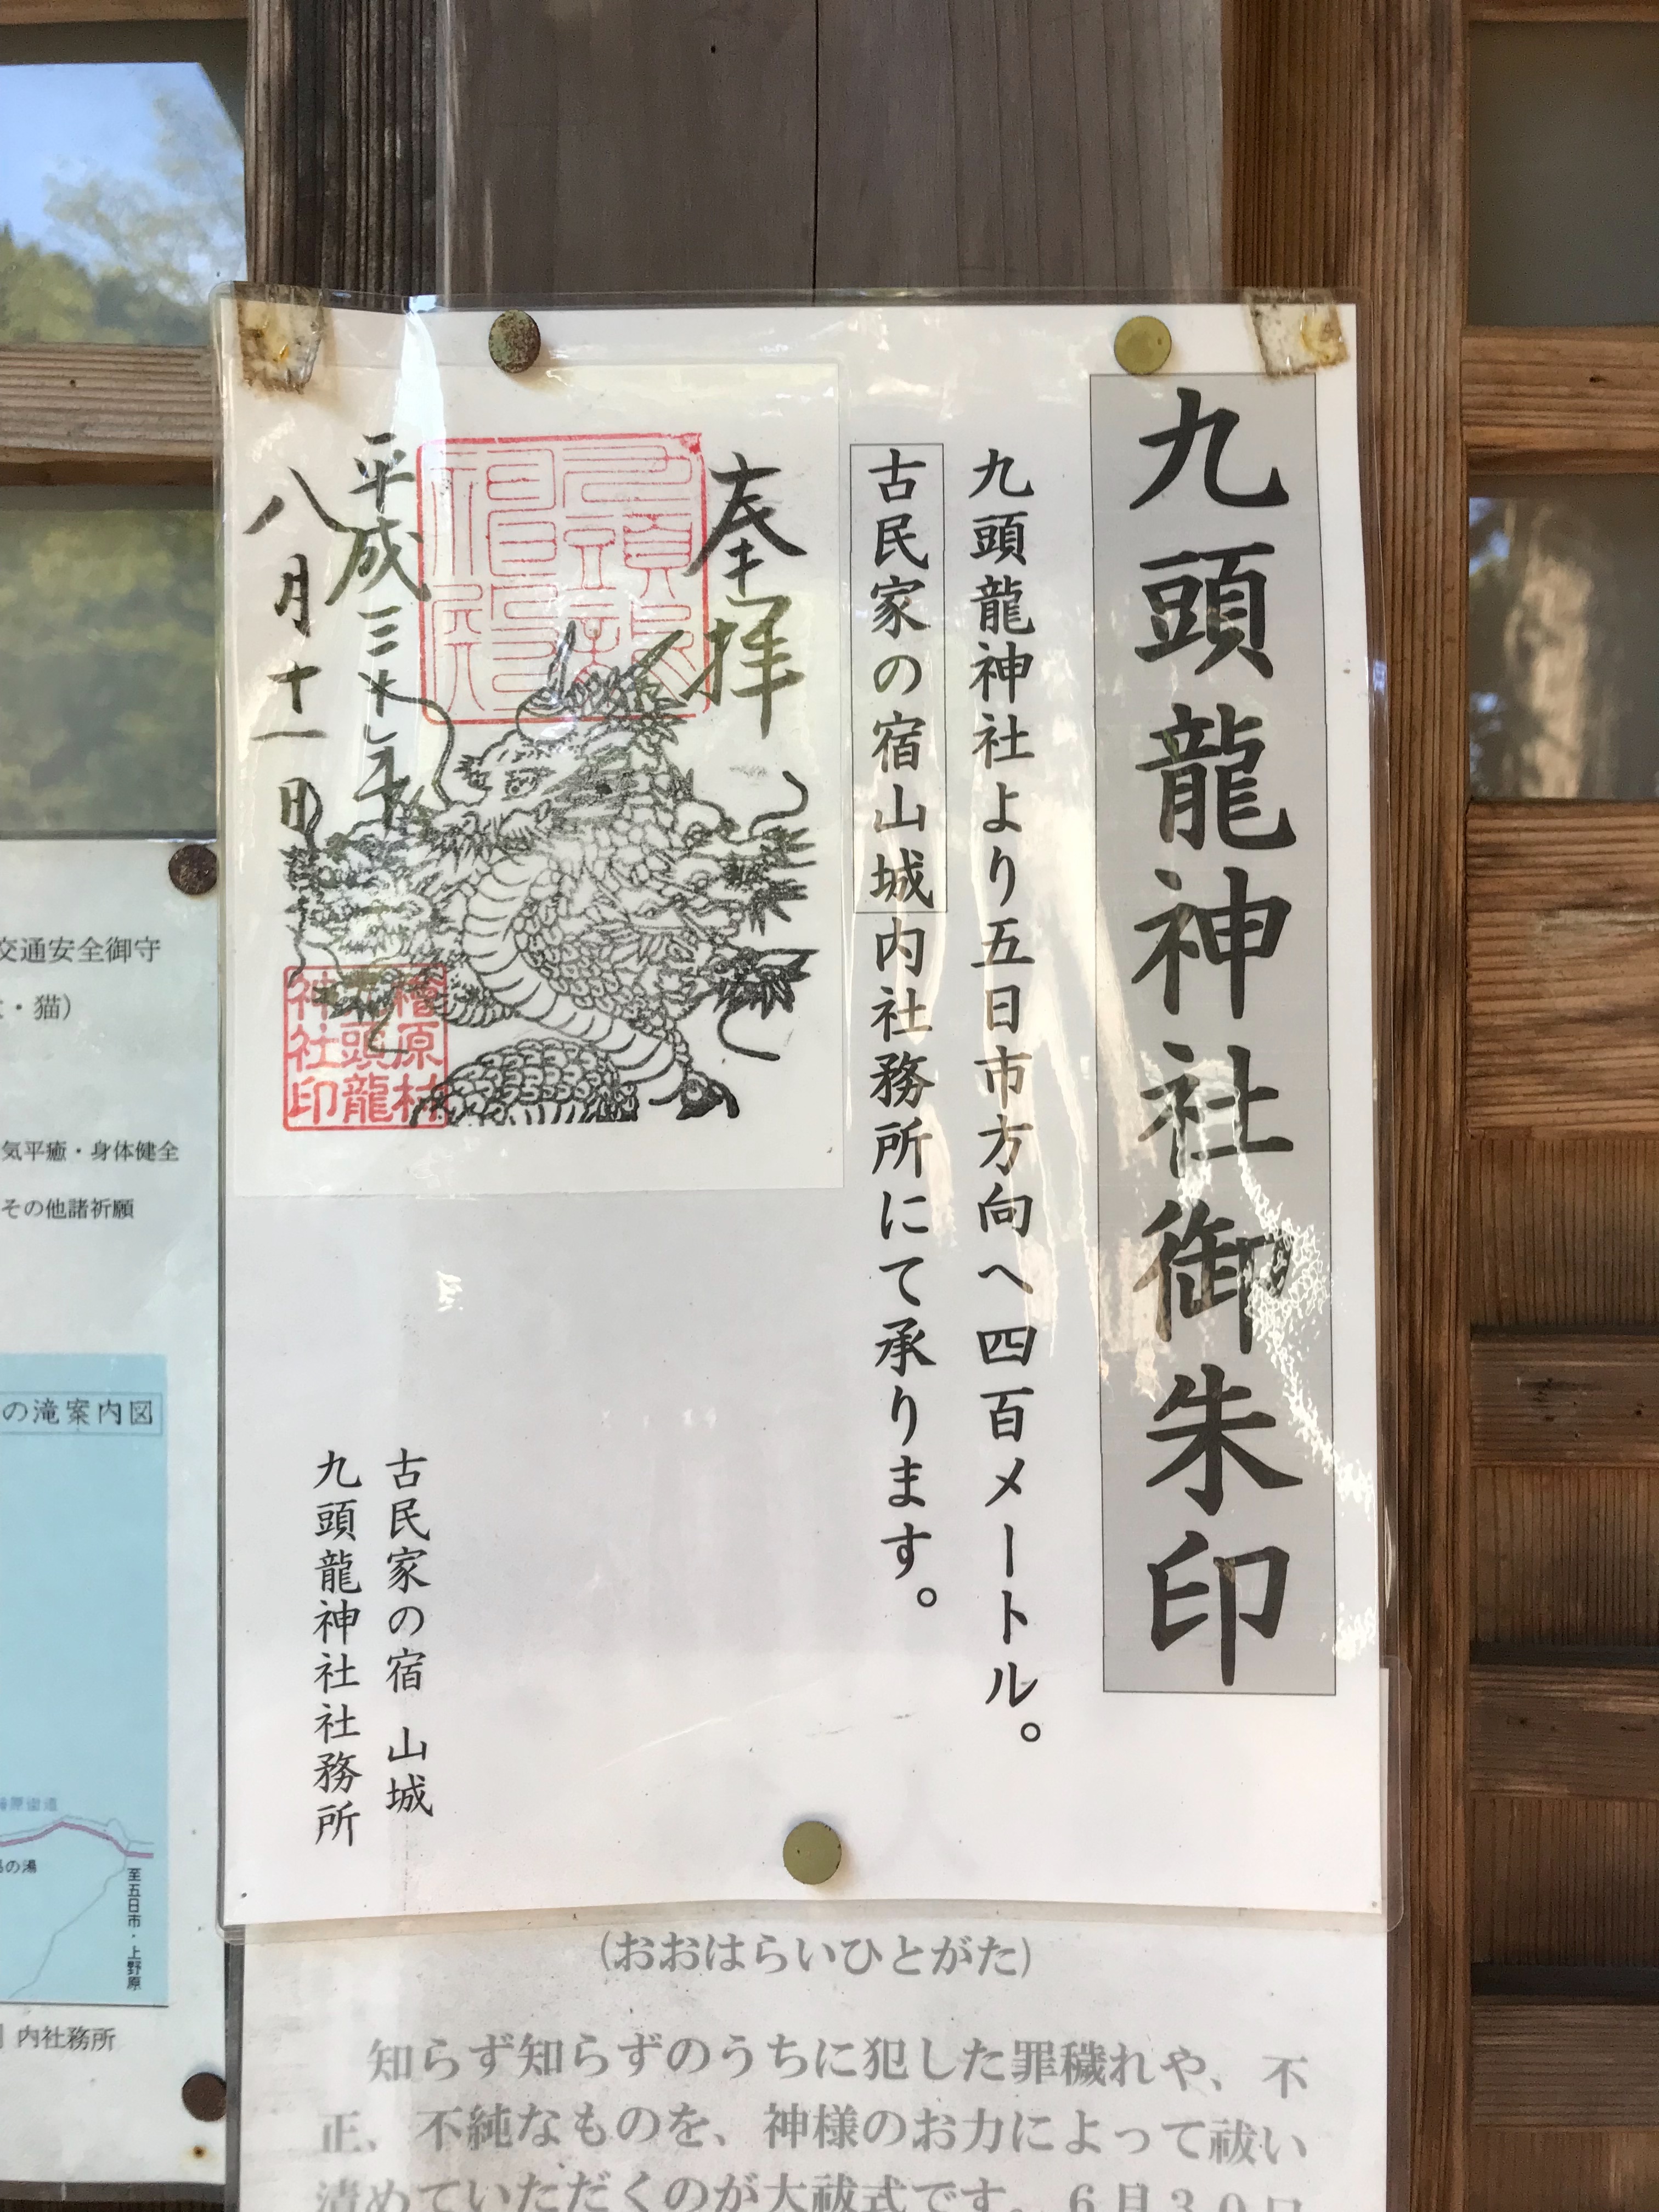 九頭龍神社御朱印
九頭龍神社より五日市方向へ四百メートル。
古民家の宿山城内社務所にて承ります。
奉拝
平成三十年
八月十一日
檜原村
九頭龍
神社印
古民家の宿 山城
九頭龍神社社務所
交通安全御守
・猫)
気平癒・身体健全
その他諸祈願
の滝案内図
の湯
至五日市・上野原
内社務所
(おおはらいひとがた)
知らず知らずのうちに犯した罪穢れや、不
正、不純なものを、神様のお力によって祓い
清めていただくのが大祓式です。6月30日